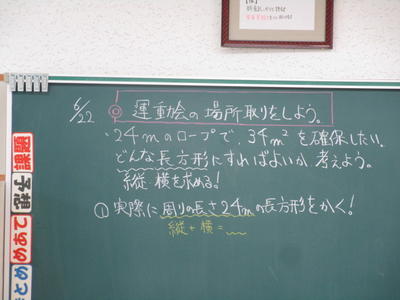 6/22 ◎ 運動会の場所取りをしよう。
・24mのロープで、34m²を確保したい。
どんな長方形にすればよいか考えよう。
縦 横を求める！
① 実際に周りの長さ24mの長方形をかく！
縦+横=
課題
予想
めあて
まとめ